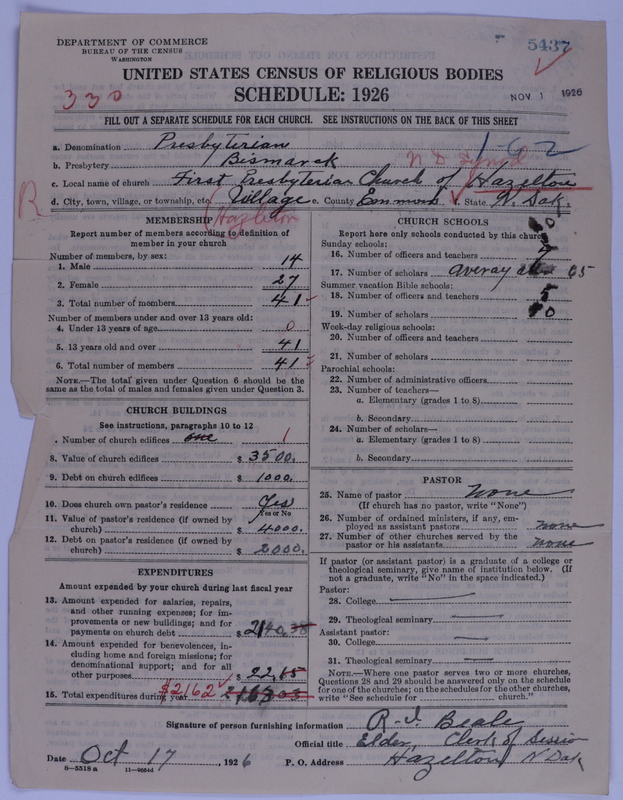 DEPARTMENT OF COMMERCE
BUREAU OF THE CENSUS
WASHINGTON
5437
UNITED STATES CENSUS OF RELIGIOUS BODIES
SCHEDULE: 1926
NOV 1 1926
330
FILL OUT A SEPARATE SCHEDULE FOR EACH CHURCH. SEE INSTRUCTIONS ON THE BACK OF THIS SHEET
a. Denomination Presbyterian 1-62
b. Presbytery Bismarck N D Synod
c. Local name of church First Presbyterian Church of Hazelton
R
d. City, town, village, or township, etc. Village e. County Emmons f. State N. Dak.
Hazelton
MEMBERSHIP
Report number of members according to definition of
member in your church
Number of members, by sex:
1. Male 14
2. Female 27
3. Total number of members 41
Number of members under and over 13 years old:
4. Under 13 years of age 0
5. 13 years old and over 41
6. Total number of members 41
NOTE.—The total given under Question 6 should be the
same as the total of males and females given under Question 3.
CHURCH BUILDINGS
See instructions, paragraphs 10 to 12
. Number of church edifices one 1
8. Value of church edifices $ 3500.
9. Debt on church edifices $ 1000.
10. Does church own pastor's residence Yes
Yes or No
11. Value of pastor's residence (if owned by
church) $ 4000.
12. Debt on pastor's residence (if owned by
church) $ 2000.
EXPENDITURES
Amount expended by your church during last fiscal year
13. Amount expended for salaries, repairs,
and other running expenses; for im-
provements or new buildings; and for
payments on church debt $ 2140.38
14. Amount expended for benevolences, in-
cluding home and foreign missions; for
denominational support; and for all
other purposes $ 22.15
15. Total expenditures during year $2162
CHURCH SCHOOLS
Report here only schools conducted by this church
Sunday schools:
16. Number of officers and teachers
17. Number of scholars 65
Summer vacation Bible schools:
18. Number of officers and teachers 5
19. Number of scholars
Week-day religious schools:
20. Number of officers and teachers
21. Number of scholars
Parochial schools:
22. Number of administrative officers
23. Number of teachers—
a. Elementary (grades 1 to 8)
b. Secondary
24. Number of scholars—
a. Elementary (grades 1 to 8)
b. Secondary
PASTOR
25. Name of pastor None
(If church has no pastor, write "None")
26. Number of ordained ministers, if any, em-
ployed as assistant pastors none
27. Number of other churches served by the
pastor or his assistants none
If pastor (or assistant pastor) is a graduate of a college or
theological seminary, give name of institution below. (If
not a graduate, write "No" in the space indicated.)
Pastor:
28. College
29. Theological seminary
Assistant pastor:
30. College
31. Theological seminary
NOTE.—Where one pastor serves two or more churches,
Questions 28 and 29 should be answered only on the schedule
for one of the churches; on the schedules for the other churches,
write "See schedule for church."
Signature of person furnishing information R. I. Beale
Official title Elder, Clerk of Session
Date Oct 17, 1926 P. O. Address Hazelton N Dak
8—5518 a 11—9664d